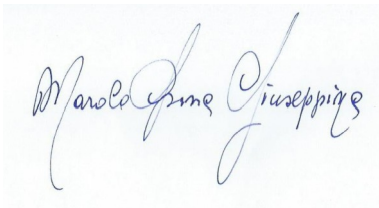 Marola Anna Giuseppina